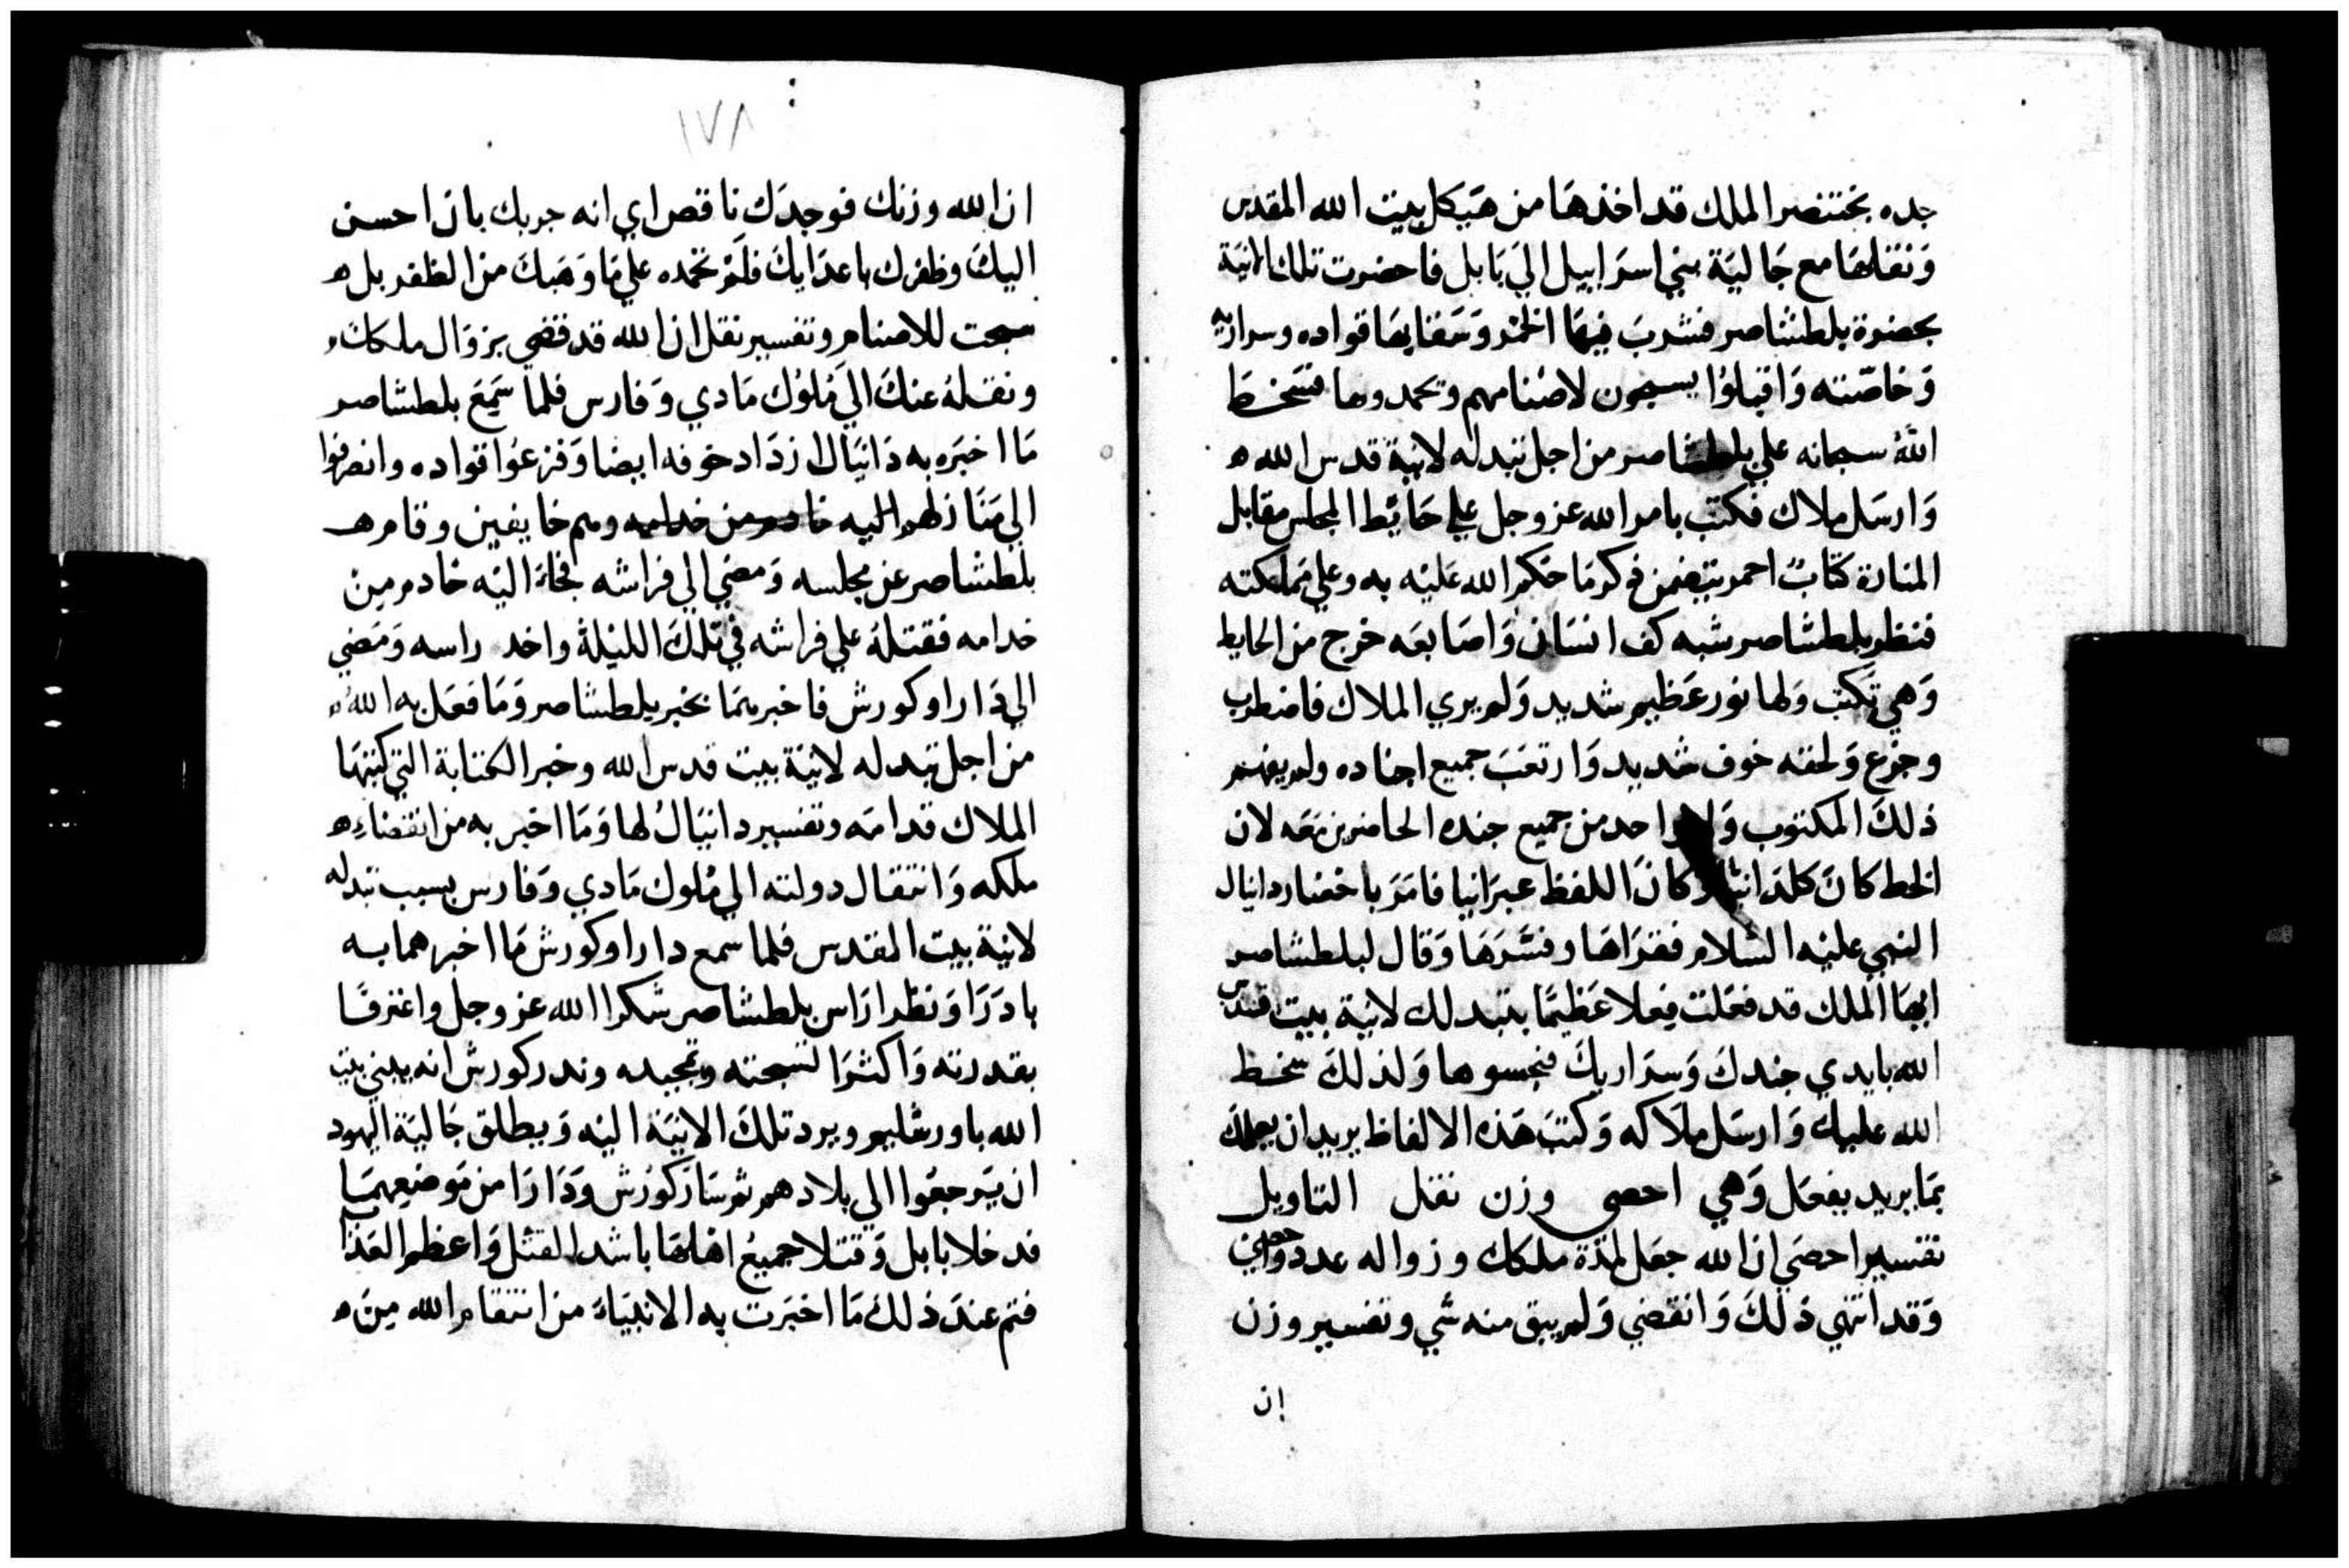 جده بختنصر الملك قد اخذها من هيكل بيت الله المقدس
ونقلها مع جالية بني اسرابيل الي بابل فاحضرت تلك الانية
بحضرة بلطشاصر فشرب فيها الخمر وسقا بها قواده وسراريه
وخاصته واقبلوا يسبحون لاصنامهم وتحمدوها فسخط
الله سبحانه علي بلطشاصر من اجل تبدله لانية قدس الله
وارسل ملاك فكتب بامر الله عز وجل علي حايط المجلس مقابل
المنارة كتابً احمر يتضمن ذكر ما حكم الله عليه به وعلي مملكته
فنظر بلطشاصر شبه كف انسان واصابعه خرج من الحايط
وهي تكتب ولها نور عظيم شديد ولم يري الملاك فاضطرب
وجزع ولحقه خوف شديد وارتعب جميع اجناده ولم يفهم
ذلك المكتوب ولا احد من جميع جنده الحاضرين معه لان
الخط كان كلدانيا وكان اللفظ عبرانيا فامر باحضار دانيال
النبي عليه السلام فقراها وفسرها وقال لبلطشاصر
ايها الملك قد فعلت فعلا عظيما بتبدلك لانية بيت قدس
الله بايدي جندك وسراريك فنجسوها ولذلك سخط
الله عليك وارسل ملاكه وكتب هذه الالفاظ يريد ان يعلمك
بما يريد يفعل وهي احصي وزن نقل التاويل
تفسير احصي ان الله جعل لمدة ملكك وزواله عدد
وقد انتهي ذلك وانقضي ولم يبق منه شي وتفسير وزن
ان
١٧٨
ان الله وزنك فوجدك ناقص اي انه جربك بان احسن
اليك وظفرك باعدايك فلم تحمده علي ما وهبك من الظفر بل
سبحت للاصنام وتفسير نقل ان الله قد قضي بزوال ملكك
ونقله عنك الي ملوك مادي وفارس فلما سمع بلطشاصر
ما اخبره به دانيال ازداد خوفه ايضا وفزعوا قواده وانصرفوا
الي منازلهم اليه خادم من خدامه وهم خايفين وقام
بلطشاصر عن مجلسه ومضي الي فراشه فجاء اليه خادم من
خدامه فقتله علي فراشه في تلك الليلة واخد راسه ومضي
الي دارا وكورش فاخبرهما بخبر بلطشاصر وما فعل به الله
من اجل تبدله لانية بيت قدس الله وخبر الكتابة التي كتبها
الملاك قدامه وتفسير دانيال لها وما اخبر به من انقضاء
ملكه وانتقال دولته الي ملوك مادي وفارس بسبب تبدله
لانية بيت المقدس فلما سمع دارا وكورش ما اخبرهما به
بادرا ونظرا راس بلطشاصر شكرا الله عز وجل واعترفا
بقدرته واكثرا لتسبحته وتمجيده وندر كورش انه يبني بيت
الله باورشليم ويرد تلك الانية اليه ويطلق جالية اليهود
ان يرجعوا الي بلادهم ثم سار كورش ودارا من موضعهما
فدخلا بابل وقتلا جميع اهلها باشد القتل واعظم العذاب
فتم عند ذلك ما اخبرت به الانبياء من انتقام الله من